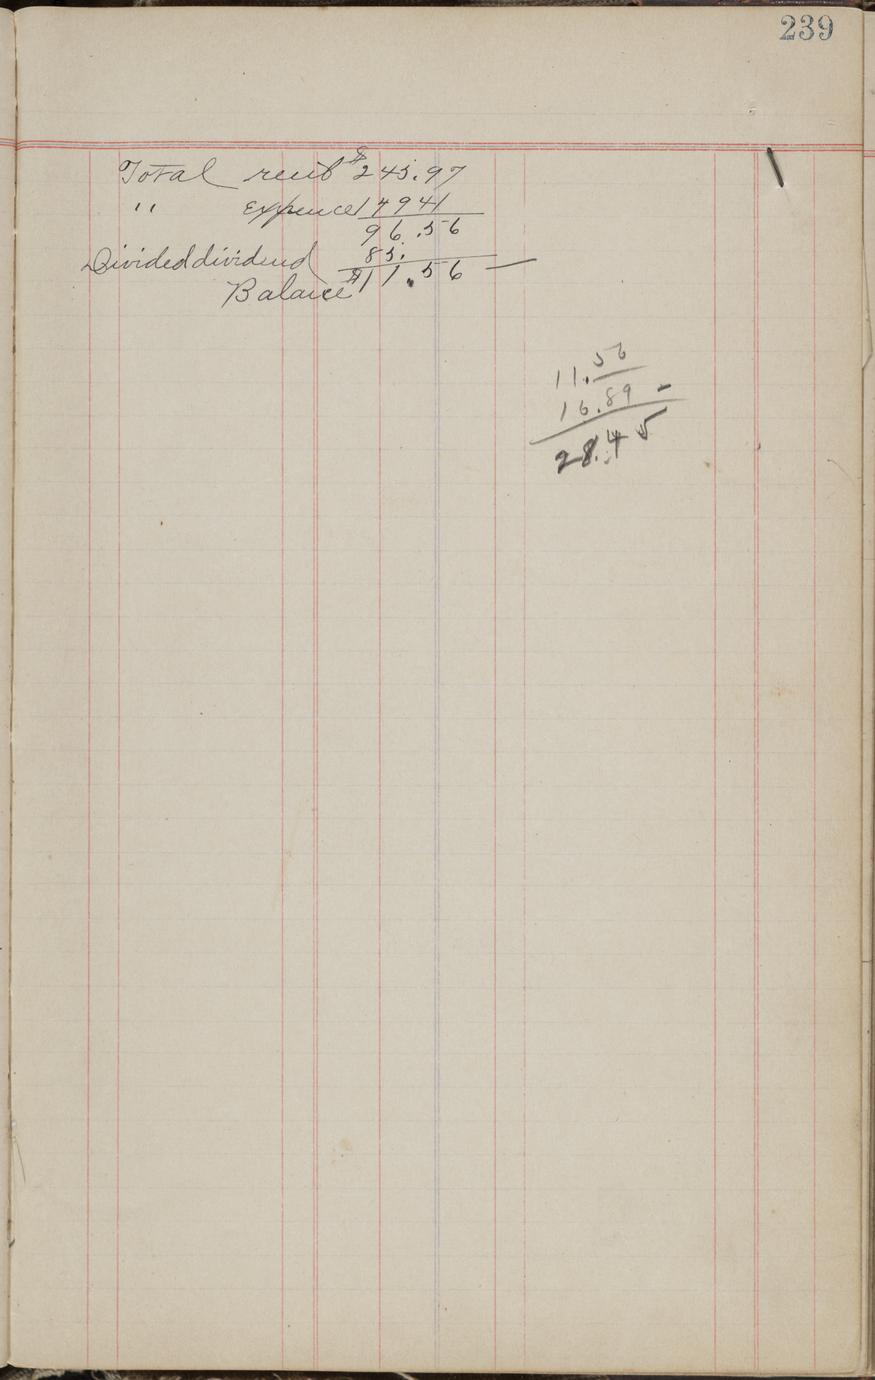 239
Total recit $245.97
" Expence 14941
96.56
Divided dividend 85.
Balance $11.56 —
11.56
16.89 -
28.45